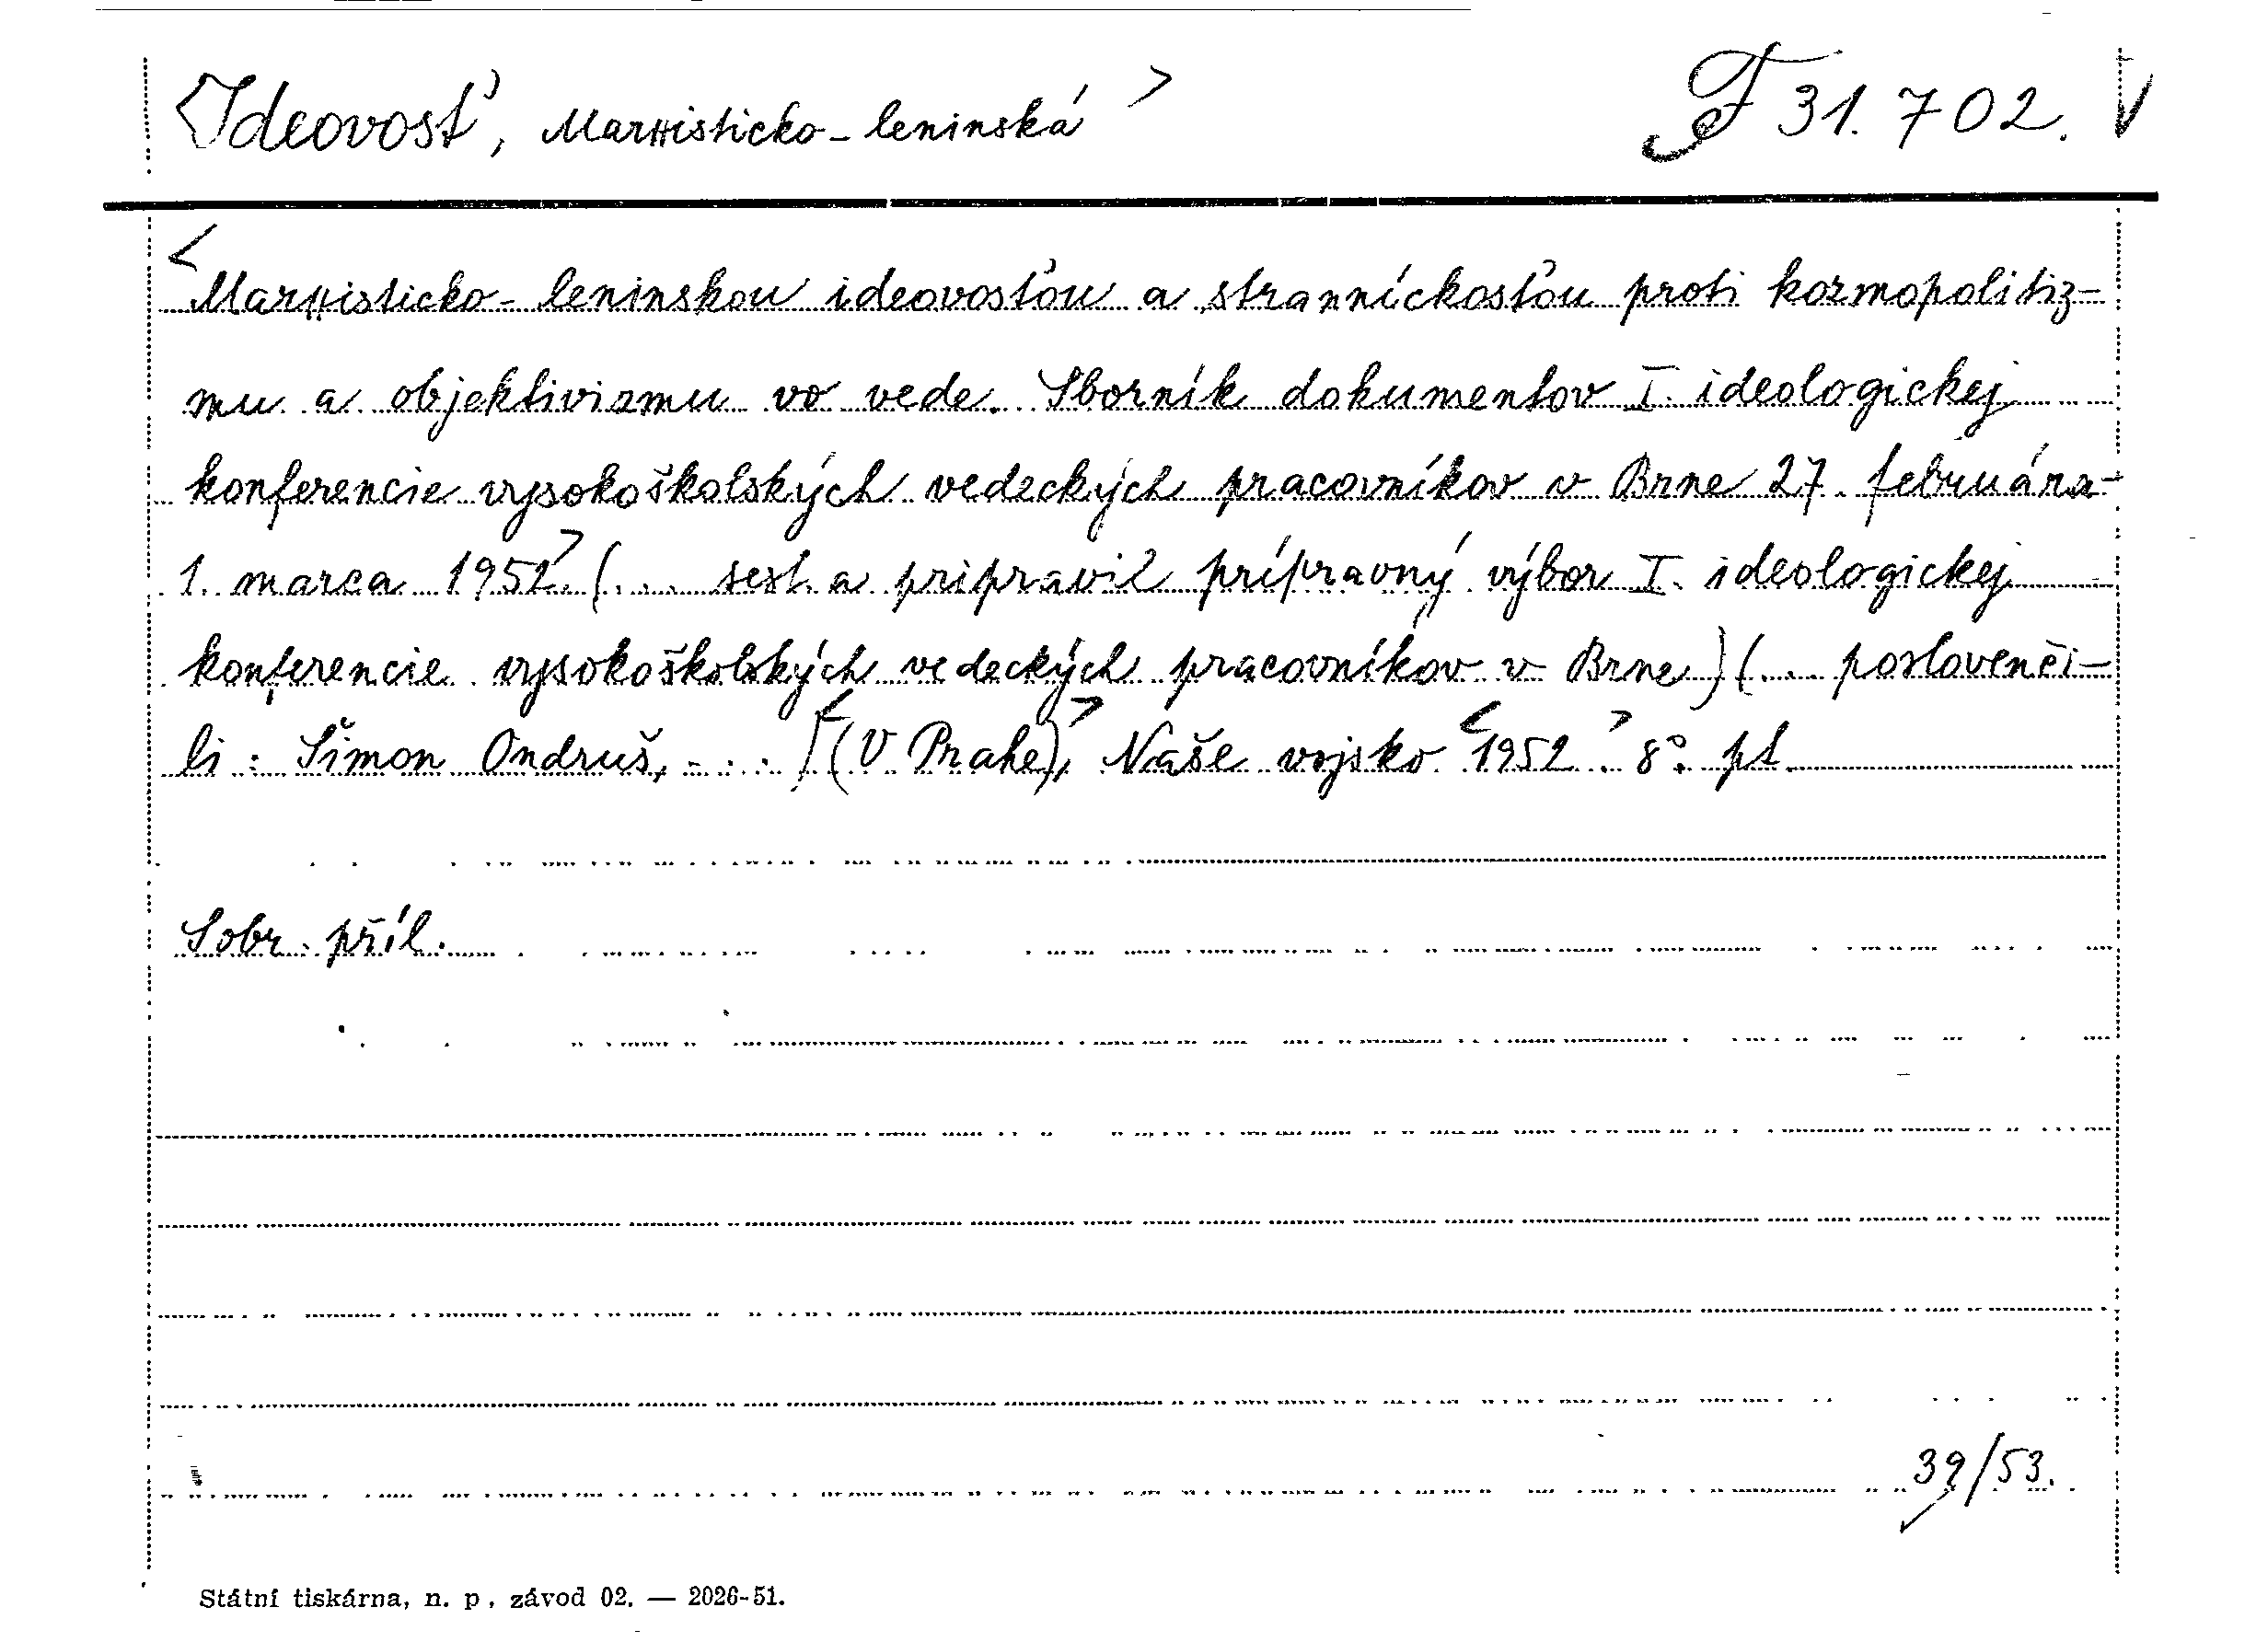 <Ideovosť, Marxisticko-leninská> F 31.702. V
<Marxisticko-leninskou ideovosťou a stranníckosťou proti kozmopolitiz-
mu a objektivizmu vo vede. Sborník dokumentov I. ideologickej
konferencie vysokoškolských vedeckých pracovníkov v Brne 27. februára-
1. marca 1952> (... sest. a pripravil prípravný výbor I. ideologickej
konferencie vysokoškolských vedeckých pracovníkov v Brne) (... poslovenči-
li: Šimon Ondruš, ...) <(V Prahe)>, Naše vojsko <1952.> 8°. pt.
Sobr. příl.
39/53.
Státní tiskárna, n. p., závod 02. — 2026-51.